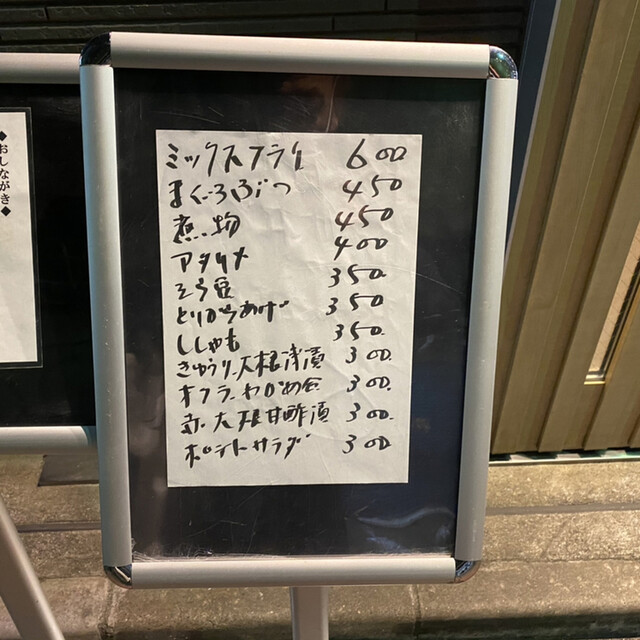 ◆おしながき◆
ミックスフライ 600
まぐろぶつ 450
煮物 450
アタリメ 400
そら豆 350.
とりからあげ 350
ししゃも 350.
きゅうり、大根 漬 300.
オクラ わかめ 300.
赤大根甘酢漬 300.
ポテトサラダ 300